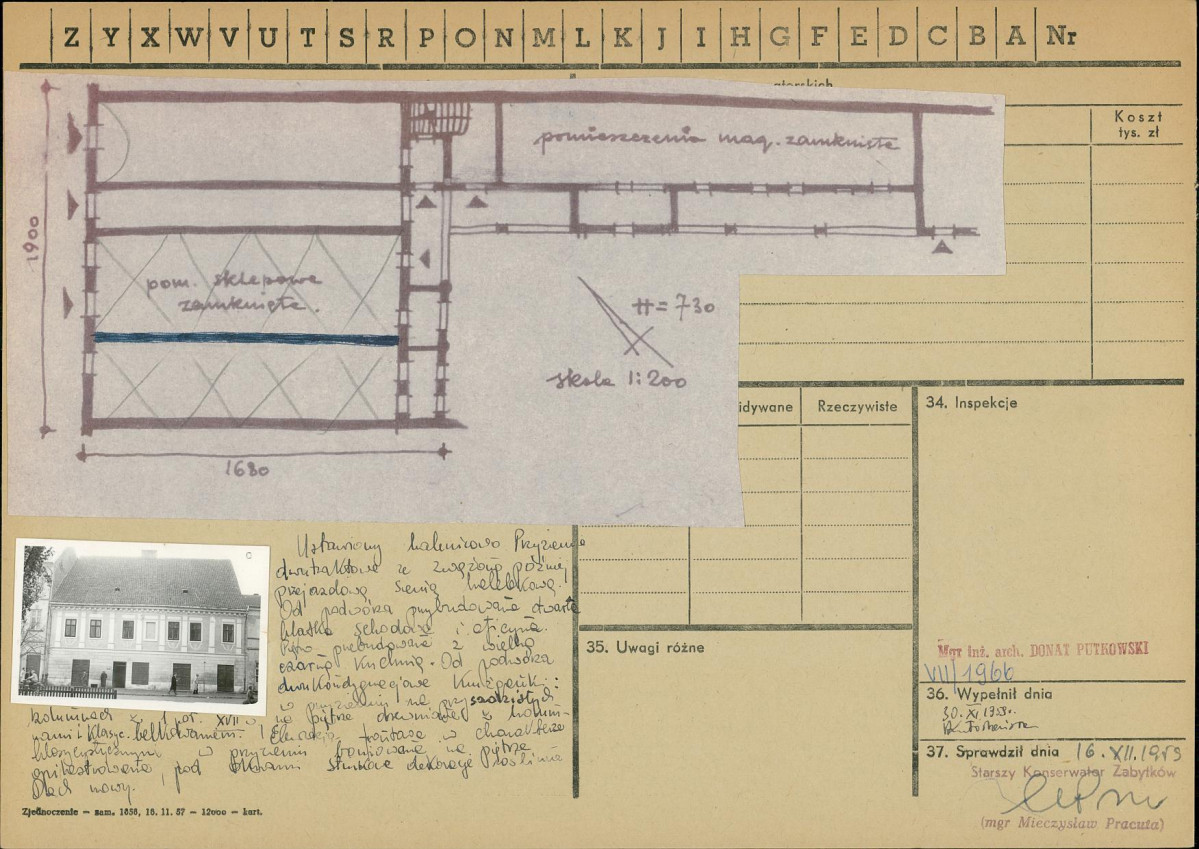 Z Y X W V U T S R P O N M L K J I H G F E D C B A Nr
Koszt
tys. zł
pomieszczenia mag. zamknięte
1900
pom. sklepowe
zamknięte.
H = 730
skala 1:200
1680
idywane
Rzeczywiste
34. Inspekcje
Ustawiony kalenicowo. Przyziemie
dwutraktowe ze zwężoną później
przejazdową sienią
Od podwórza przybudowana otwarta
klatka schodowa i oficyna.
przebudowane z wielką
czarną kuchnią. Od podwórza
dwukondygnacyjowe krużganki:
w przyziemiu na przysadzistych
kolumnach z 1 poł. XVII w na piętrze drewniane z kolum-
nami i klasyc. belkowaniem. Elewacja frontowa w charakterze
klasycystycznym w przyziemiu boniowana na piętrze
opilastrowana, pod oknami dekoracje roślinne
Dach nowy.
35. Uwagi różne
Mgr inż. arch. DONAT PUTKOWSKI
VII/1966
36. Wypełnił dnia
30.XI 1959.
37. Sprawdził dnia 16.XII.1959
Starszy Konserwator Zabytków
(mgr Mieczysław Pracuta)
Zjednoczenie — zam. 1656, 16. 11. 57 — 12000 — kart.